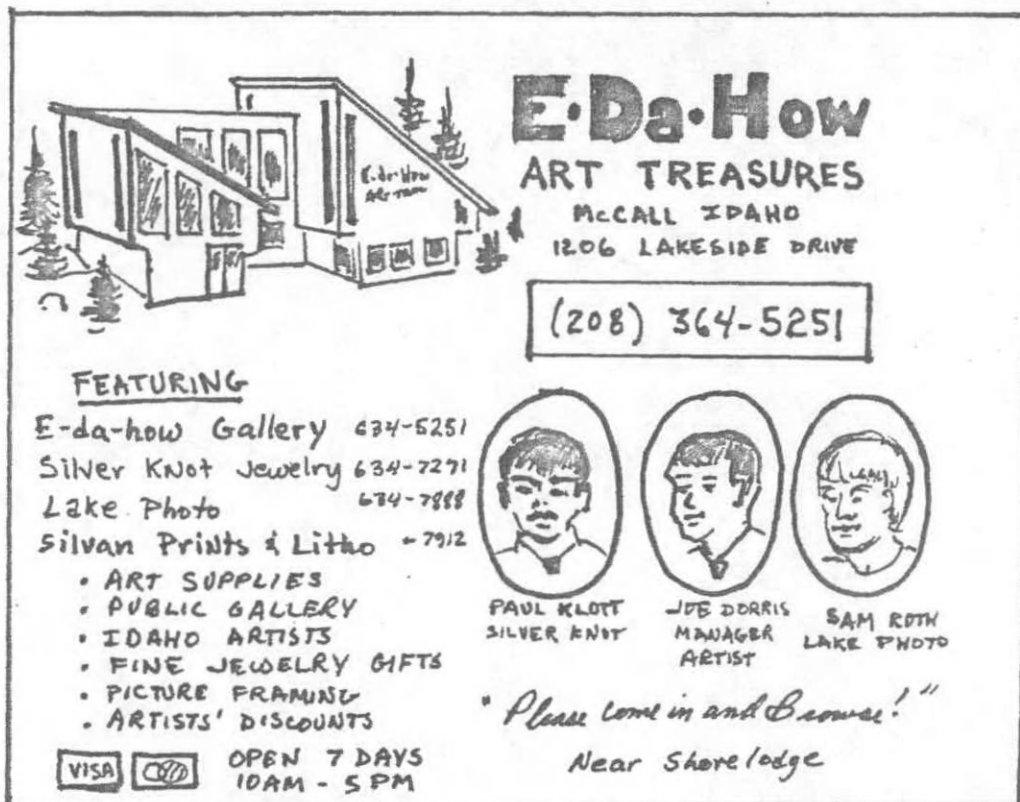 E·Da·How
ART TREASURES
McCALL IDAHO
1206 LAKESIDE DRIVE
(208) 364-5251
E·da·How
FEATURING
E-da-how Gallery 634-5251
Silver Knot Jewelry 634-7291
Lake Photo 634-7888
Silvan Prints & Litho - 7912
• ART SUPPLIES
• PUBLIC GALLERY
• IDAHO ARTISTS
• FINE JEWELRY GIFTS
• PICTURE FRAMING
• ARTISTS' DISCOUNTS
VISA
OPEN 7 DAYS
10AM - 5PM
PAUL KLOTT
SILVER KNOT
JOE DORRIS
MANAGER
ARTIST
SAM ROTH
LAKE PHOTO
"Please come in and Browse!"
Near Shorelodge